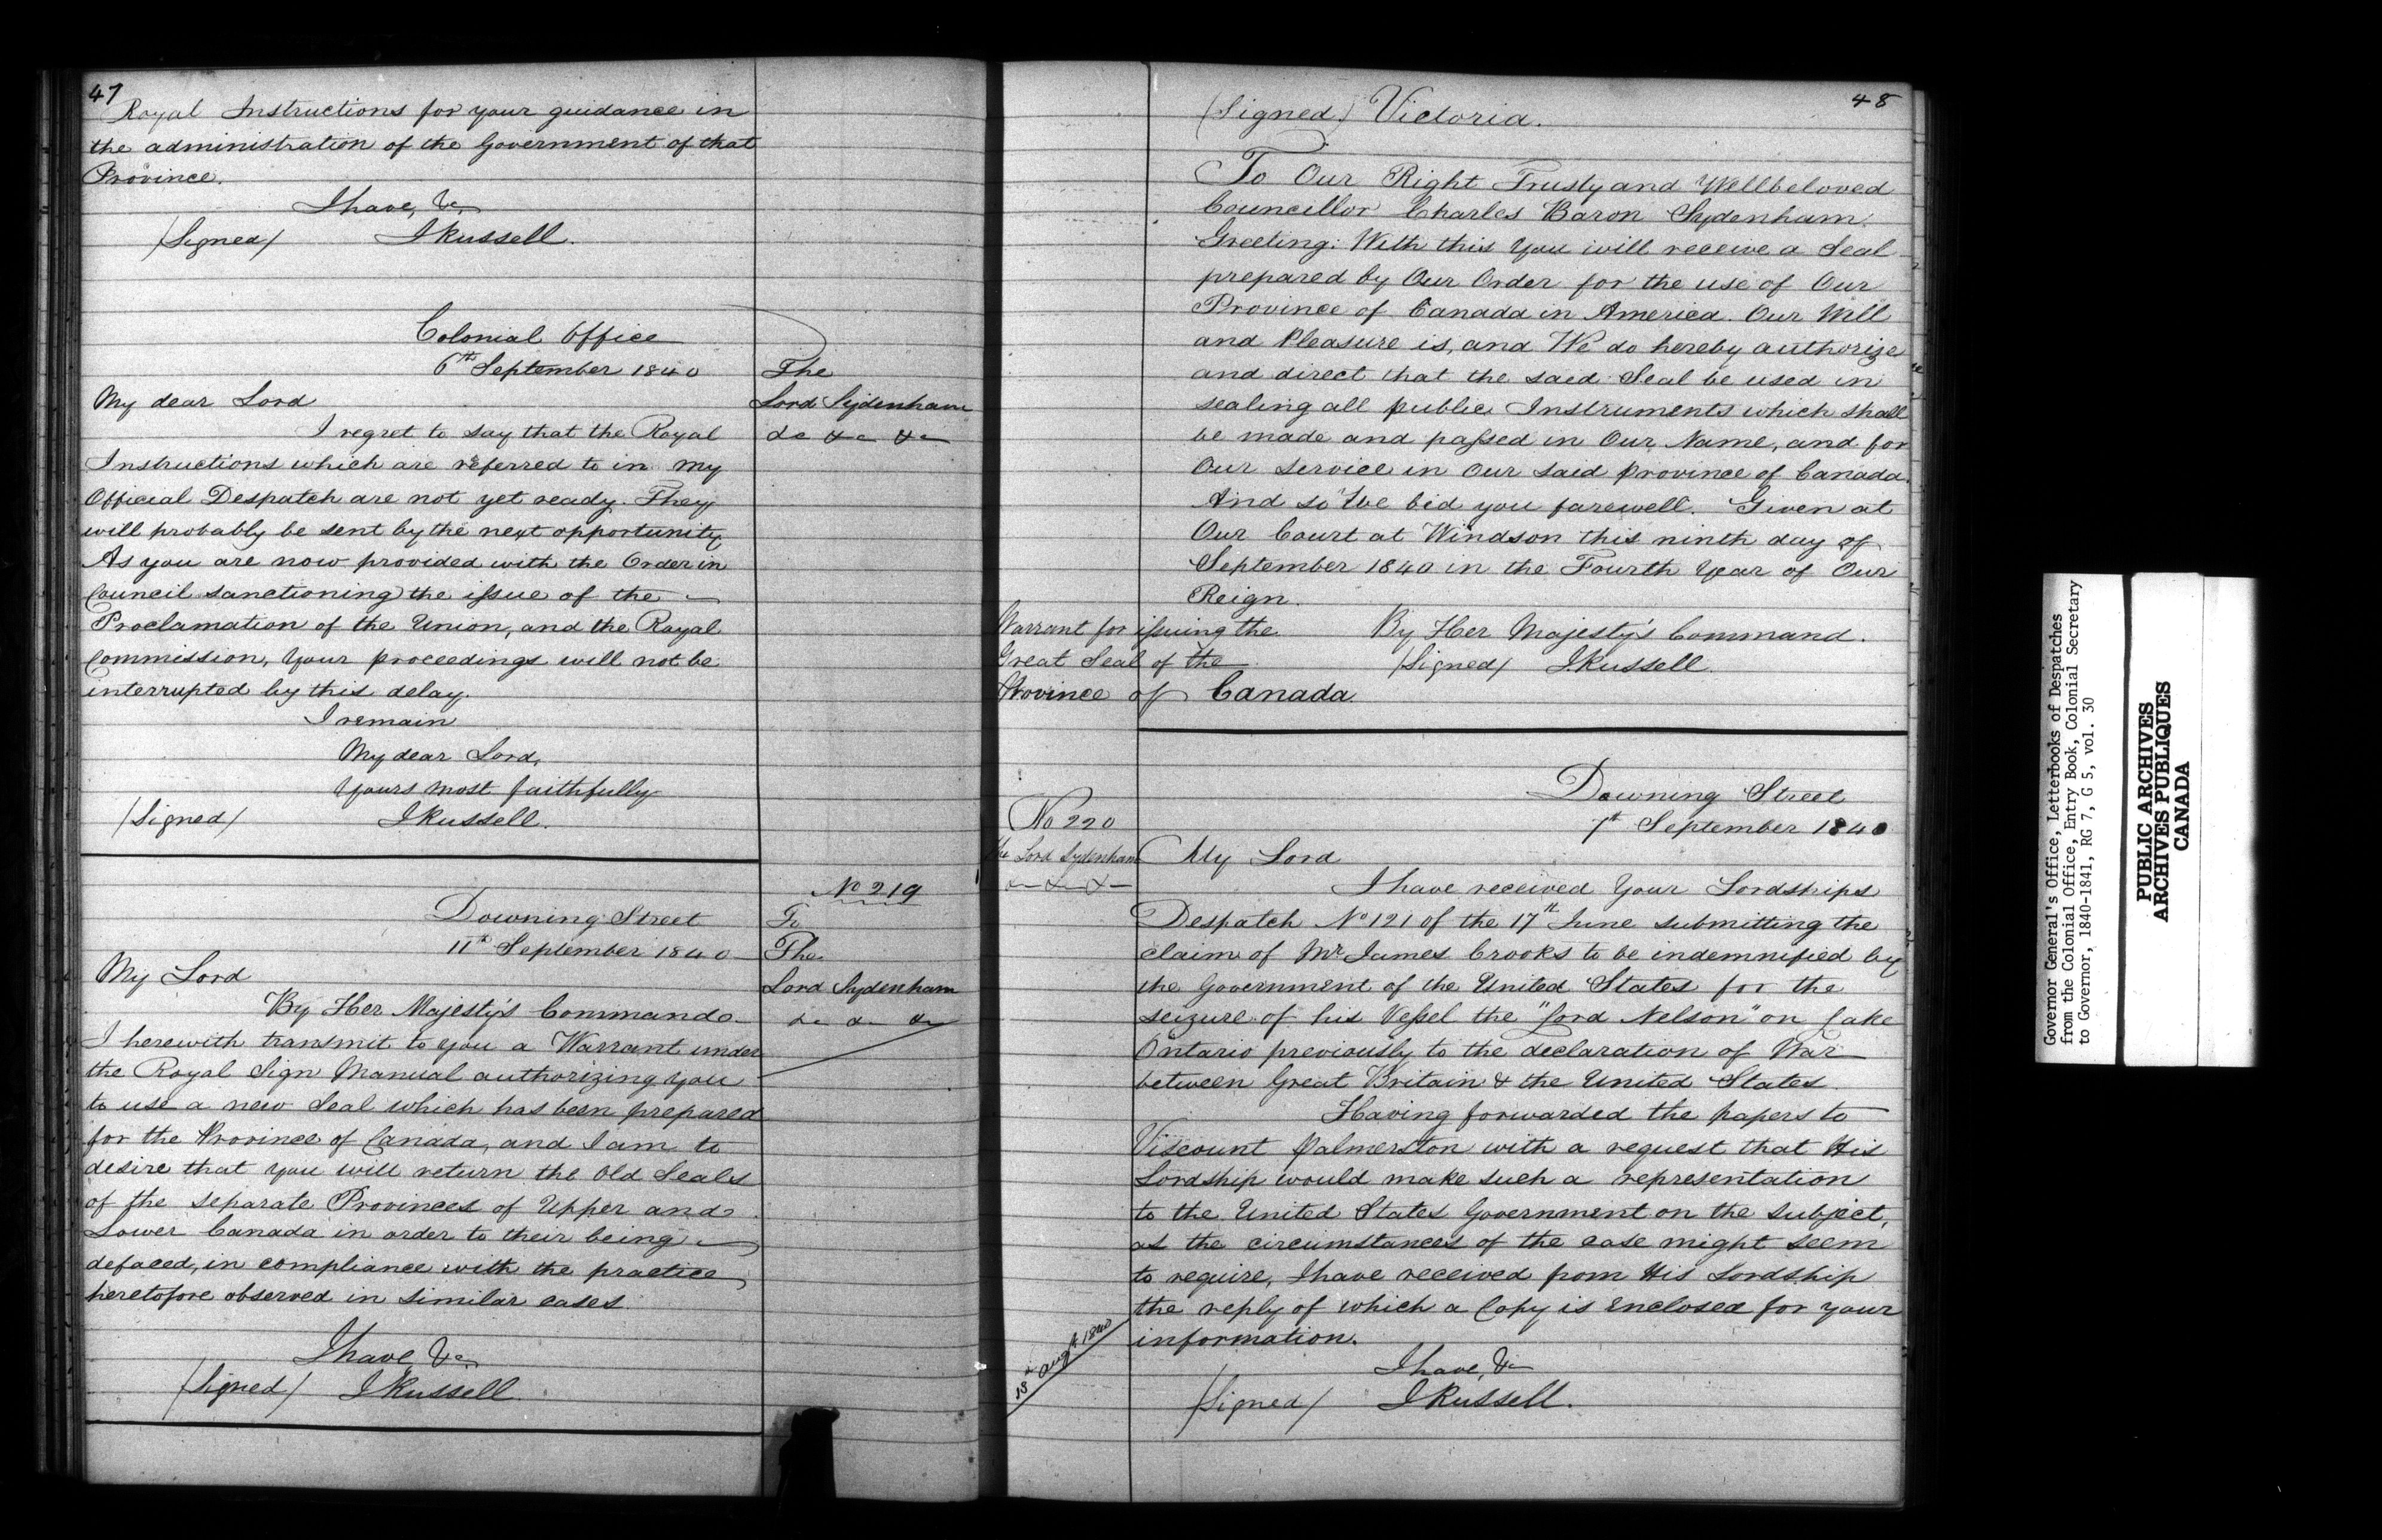 47
Royal Instructions for your guidance in
the administration of the Government of that
Province.
I have, &c
/Signed/ J Russell.
Colonial Office
6th September 1840
The
Lord Sydenham
&c &c &c
My dear Lord
I regret to say that the Royal
Instructions which are referred to in my
Official Despatch are not yet ready. They
will probably be sent by the next opportunity
As you are now provided with the Order in
Council sanctioning the issue of the
Proclamation of the Union, and the Royal
Commission, your proceedings will not be
interrupted by this delay.
I remain
My dear Lord,
Yours most faithfully
/Signed/ J Russell.
No 219
To
The
Lord Sydenham
&c &c &c
Downing Street
11th September 1840
My Lord
By Her Majesty's Command
I herewith transmit to you a Warrant under
the Royal Sign Manual authorizing you
to use a new Seal which has been prepared
for the Province of Canada, and I am to
desire that you will return the Old Seals
of the separate Provinces of Upper and
Lower Canada in order to their being
defaced, in compliance with the practice
heretofore observed in similar cases.
I have &c
/Signed/ J Russell
48
(Signed) Victoria.
To Our Right Trusty and Wellbeloved
Councillor Charles Baron Sydenham
Greeting: With this You will receive a Seal
prepared by Our Order for the use of Our
Province of Canada in America. Our Will
and Pleasure is, and We do hereby authorize
and direct that the said Seal be used in
sealing all public Instruments which shall
be made and passed in Our Name, and for
Our service in Our said province of Canada.
And so We bid you farewell. Given at
Our Court at Windson this ninth day of
September 1840 in the Fourth Year of Our
Reign.
By Her Majesty's Command.
/Signed/ J. Russell.
Warrant for issuing the
Great Seal of the
Province of Canada.
No 220
The Lord Sydenham
&c &c &c
Downing Street
7th September 1840
My Lord
I have received Your Lordships
Despatch No 121 of the 17th June submitting the
claim of Mr James Crooks to be indemnified by
the Government of the United States for the
seizure of his Vessel the "Lord Nelson" on Lake
Ontario previously to the declaration of War
between Great Britain & the United States.
Having forwarded the papers to
Viscount Palmerston with a request that His
Lordship would make such a representation
to the United States Government on the subject,
as the circumstances of the case might seem
to require, I have received from His Lordship
the reply of which a Copy is enclosed for your
information.
13th Augt 1840
I have, &c
/Signed/ J Russell.
Governor General's Office, Letterbooks of Despatches
from the Colonial Office, Entry Book, Colonial Secretary
to Governor, 1840-1841, RG 7, G 5, vol. 30
PUBLIC ARCHIVES
ARCHIVES PUBLIQUES
CANADA